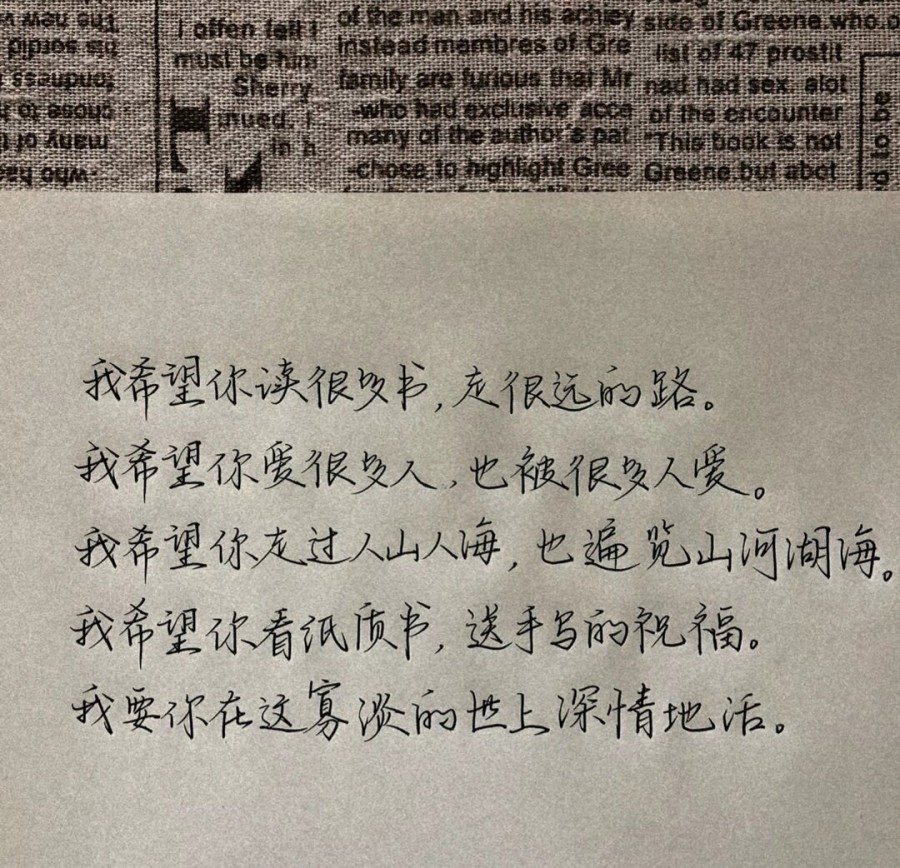 I offen felt I
must be him
Sherry
inued. I
in h
of the man and his achiev
instead membres of Gre
family are furious that Mr
-who had exclusive acce
many of the author's pat
-chose to highlight Gree
side of Greene.who.o
list of 47 prostit
nad had sex. alot
of the encounter
"This book is not
Greene.but abot
我希望你读很多书,走很远的路。
我希望你爱很多人,也被很多人爱。
我希望你走过人山人海,也遍览山河湖海。
我希望你看纸质书,送手写的祝福。
我要你在这寡淡的世上深情地活。